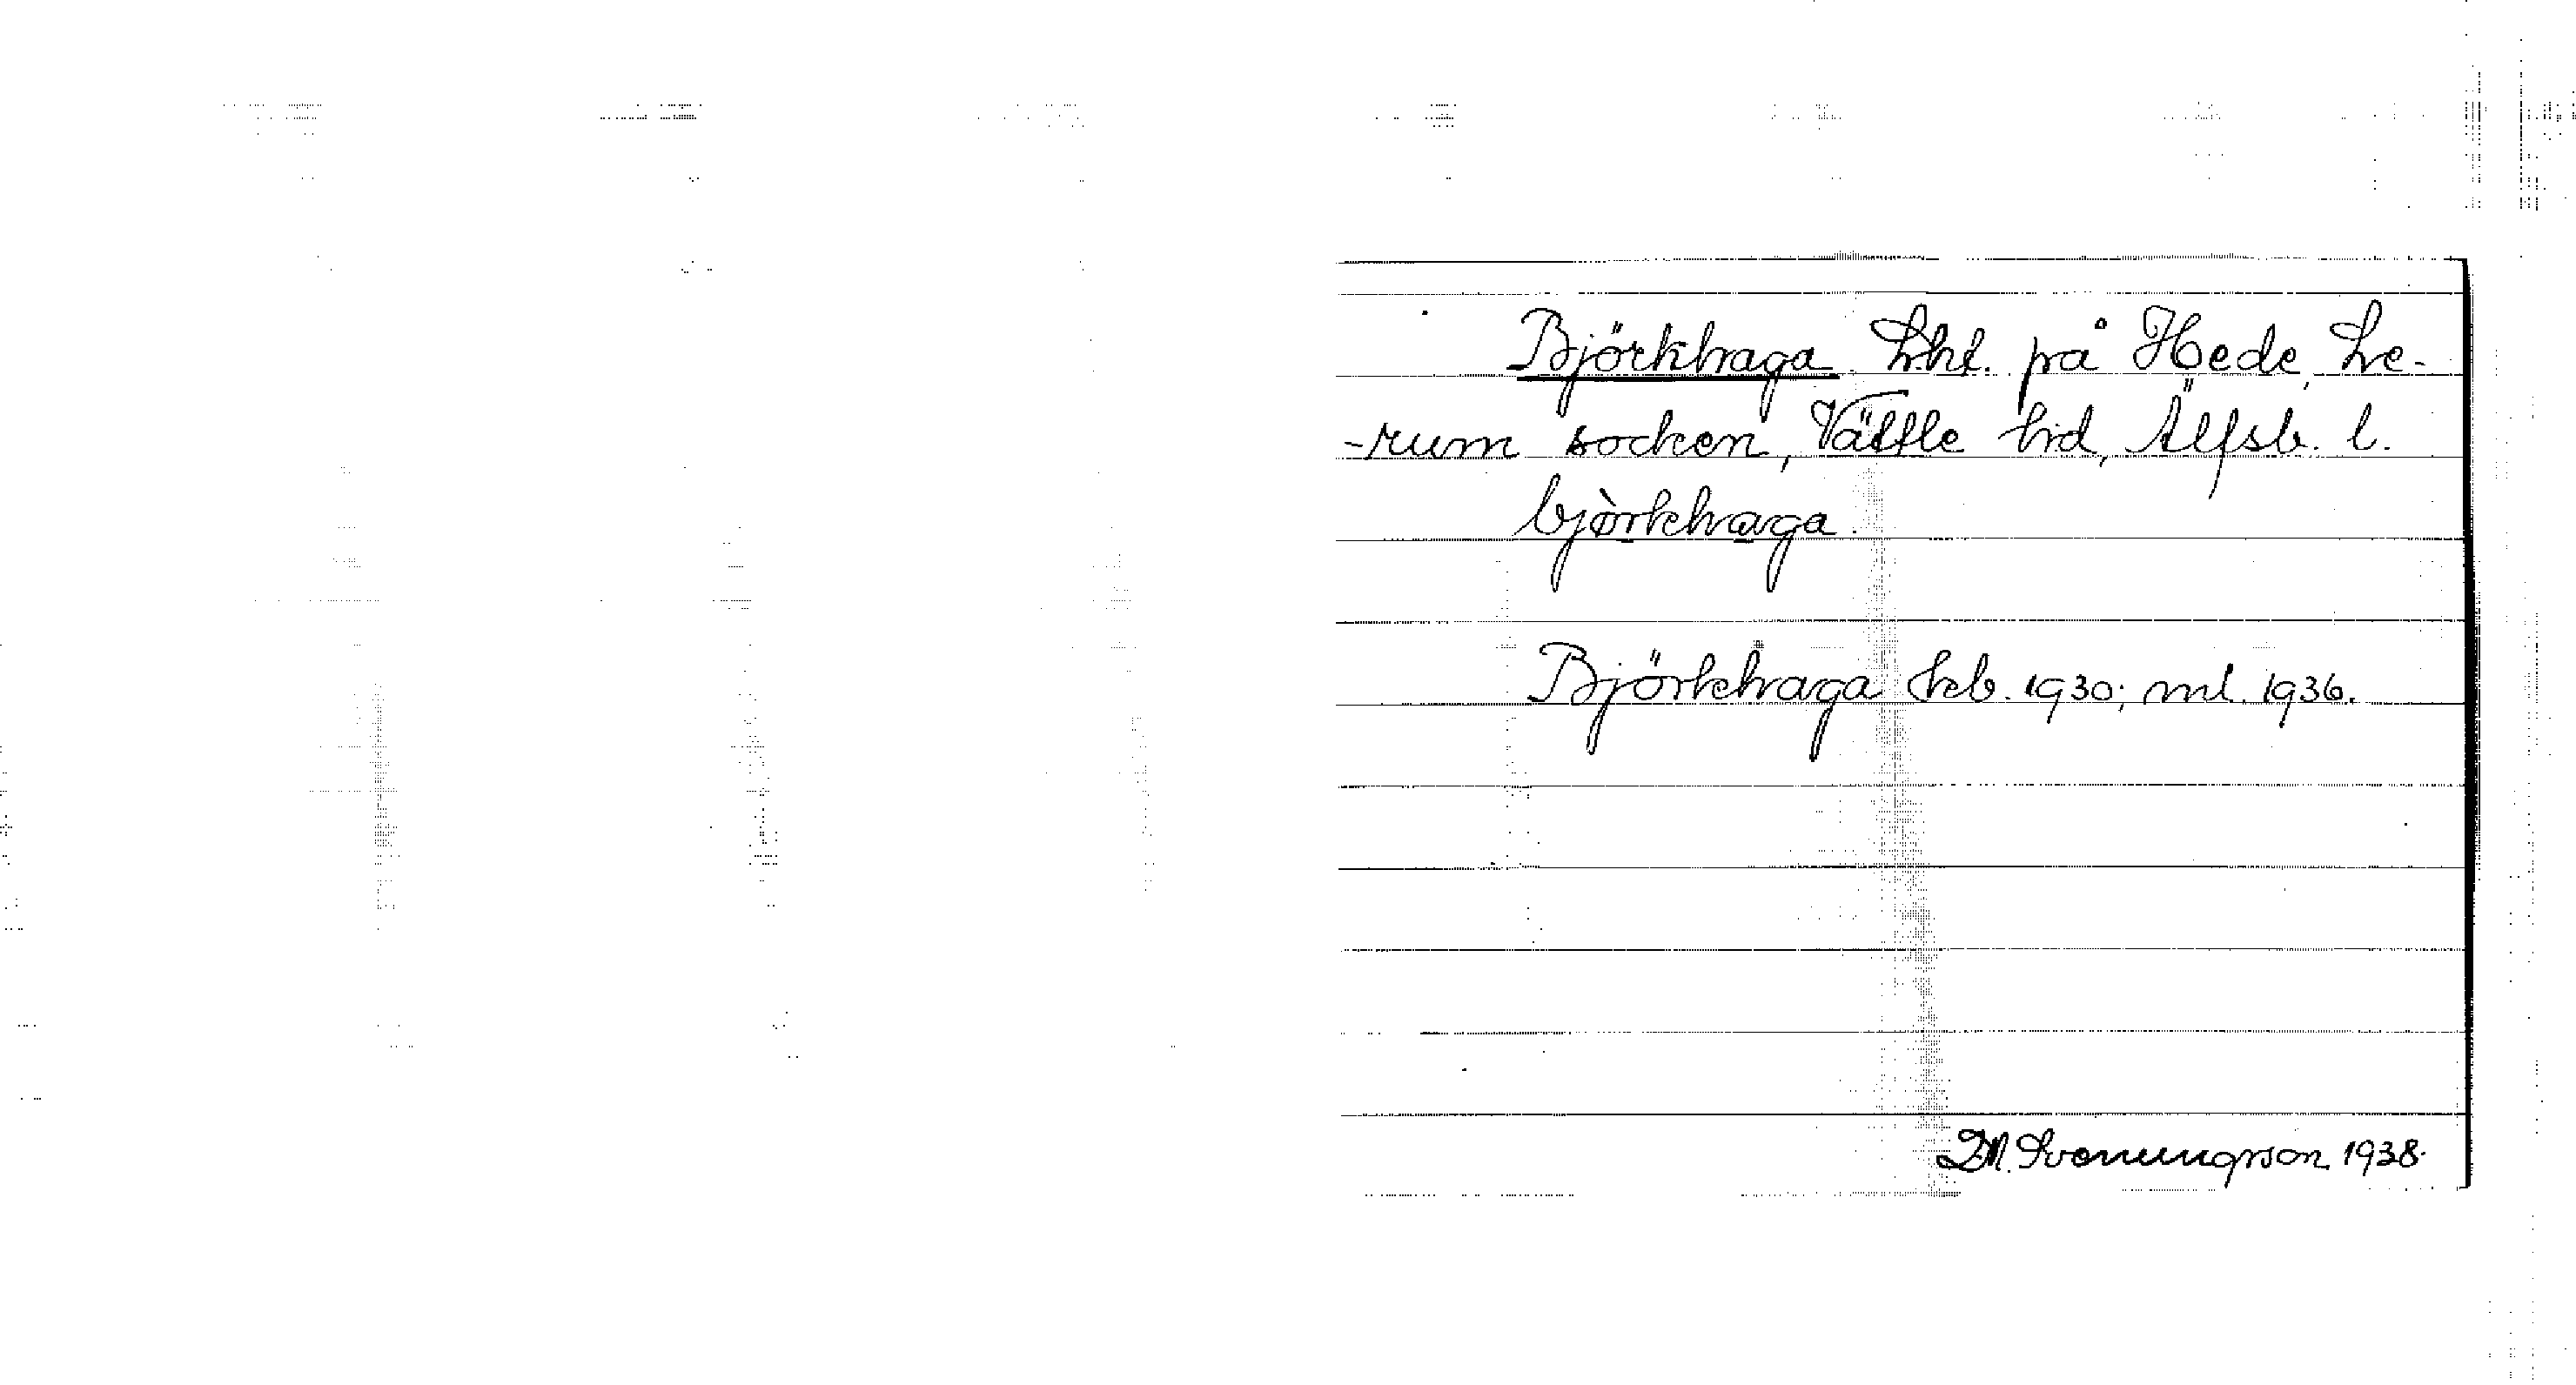 Björkhaga. Lht. på Hede, Le-
-rum socken, Vättle hd, Älfsb. l.
bjòrkhaga.
Björkhaga kb. 1930; ml. 1936.
D.M. Svenungsson 1938.